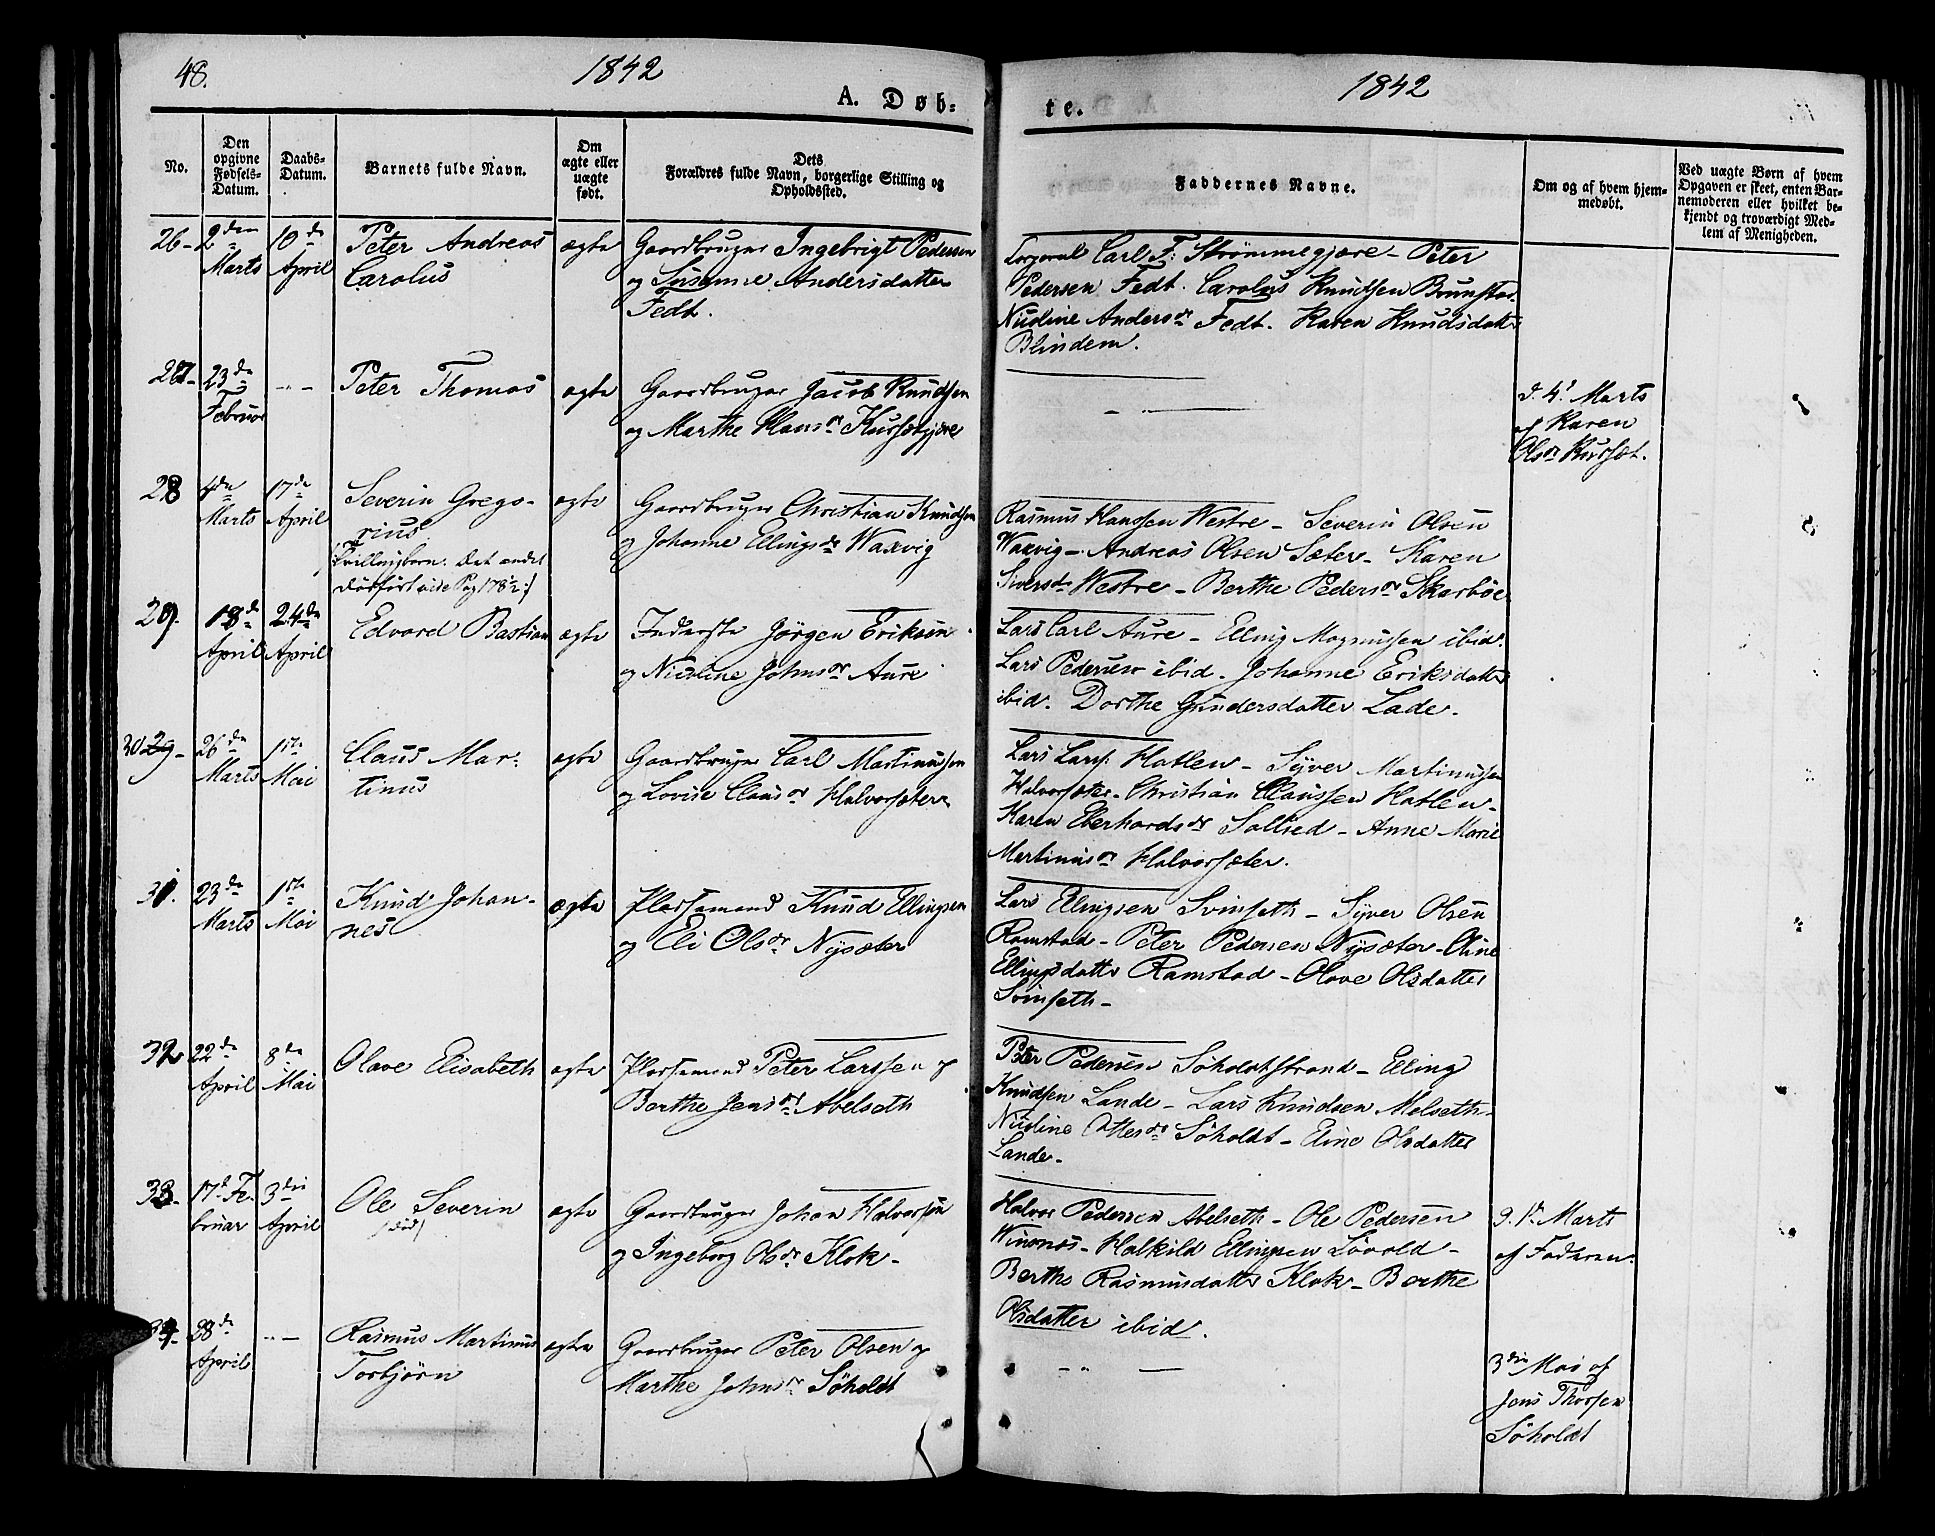 48.
1842
A. Døb-
No.
Den opgivne Fødsels-Datum.
Daabs-Datum.
Barnets fulde Navn.
Om ægte eller uægte født.
Dets Forældres fulde Navn, borgerlige Stilling og Opholdssted.
26 - 2den Marts 10de April
Peter Andreas
Carolus
ægte
Gaardbruger Ingebrigt Pedersen
og Susanne Andersdatter
Fedt.
27 - 23de Februar
Peter Thomas
ægte
Gaardbruger Jacob Knudsen
og Marthe Hansdr
28 4de Marts 17de April
Severin Grego-
rius
(Tvillingbarn. Det andet
dødfødt vide Pag 178½:)
ægte
Gaardbruger Christian Knudsen
og Johanne Ellingsdr Waxvig
29. 18de April 24de April
Edvard Bastian
ægte
Inderste Jörgen Eriksen
og Nicoline Johnsdr Aure
30 29 - 26de Marts 1ste Mai
Claus Mar-
tinus
ægte
Gaardbruger Carl Martinussen
og Lovise Clausdr Halvorsæter
31. 23de Marts 1ste Mai
Knud Johan-
nes
ægte
Pladsemand Knud Ellingsen
og Eli Olsdr Nysæter
32 22de April 8de Mai
Olave Elisabeth
ægte
Pladsemand Peter Larssen og
Berthe Jensdr Abelseth
33. 17d Fe-
bruar 3die April
Ole Severin
(død)
ægte
Gaardbruger Johan Halvorsen
og Ingeborg Olsdr Klok -
34. 28de April
Rasmus Martinus
Torbjörn
ægte
Gaardbruger Peter Olsen og
Marthe Johnsdr Söholdt
1842
te.
Faddernes Navne.
Om og af hvem hjem-
medøbt.
Ved uægte Børn af hvem
Opgaven er skeet, enten Bar-
nemoderen eller hvilket be-
kjendt og troværdigt Med-
lem af Menigheden.
Corporal Carl F: Strömmegjære - Peter
Pedersen Fedt. Carolus Knudsen Brunstad
Nicoline Andersdr Fedt. Karen Knudsdatter
Blindem.
d. 4de Marts
af Karen
Olsdr Kurset.
Rasmus Hanssen Westre - Severin Olsen
Waxvig - Andreas Olsen Sæter - Karen
Siversdr Westre - Berthe Pedersdr Skarböe
Lars Carl Aure - Elling Magnusen ibid.
Lars Pedersen ibid. Johanne Eriksdatter
ibid. Dorthe Gundersdatter Lade.
Lars Larss. Hatlen - Syver Martinussen
Halvorsæter - Christian Claussen Hatlen -
Karen Eberhardsdr Sollied - Anne Marie
Martinusdr Halvorsæter.
Lars Ellingsen Svinseth - Syver Olsen
Ramstad - Peter Pedersen Nysæter - Oline
Ellingsdatter Ramstad - Olave Olsdatter
Svinseth -
Peter Pedersen Söholdtstrand - Elling
Knudsen Lande - Lars Knudsen Melseth -
Nicoline Ottesdr Söholdt - Eline Olsdatter
Lande -
Halvor Pedersen Abelseth - Ole Pedersen
Halkild Ellingsen Lövold -
Berthe Rasmusdatter Klok - Berthe
Olsdatter ibid.
d. 1ste Marts
af Faderen.
3die Mai af
Jens Thorsen
Söholdt